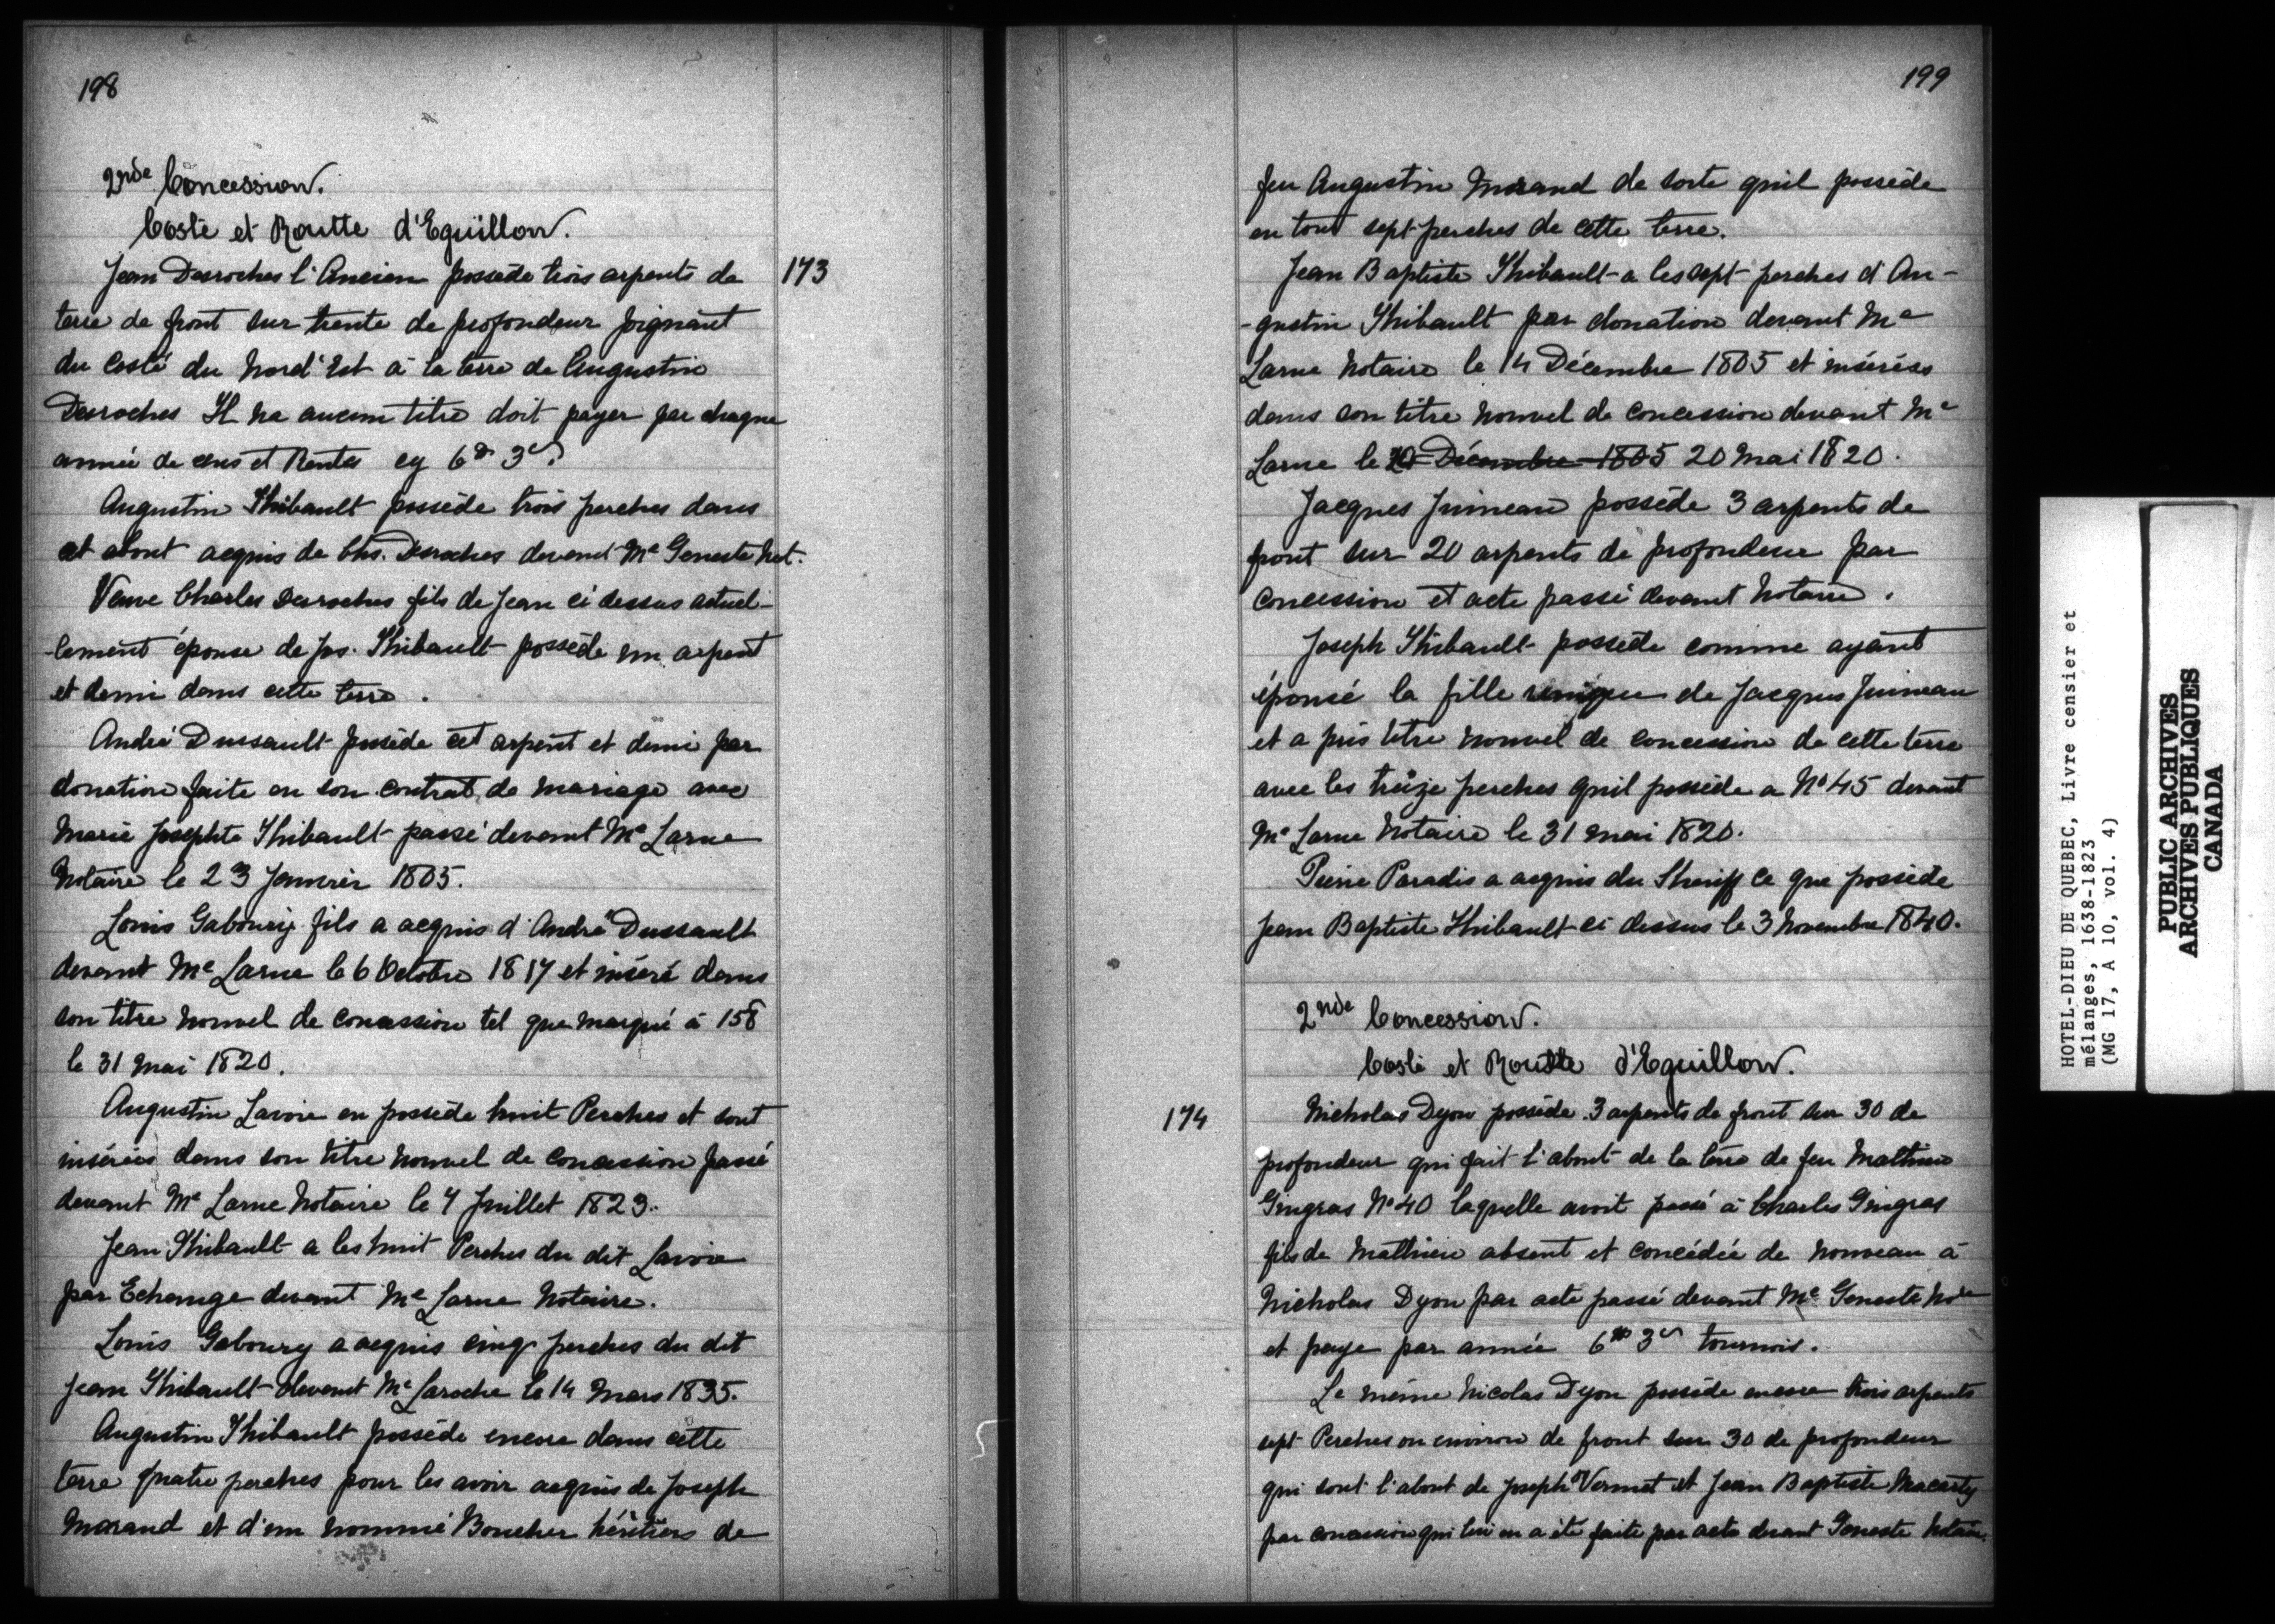 198
2nde Concession.
Costé et Routte d'Eguillon.
173
Jean Desroches l'Ancien possède trois arpents de
terre de front sur trente de profondeur joignant
du Costé du Nord'Est à la terre de Augustin
Desroches Il na aucun titre doit payer par chaque
année de cens et Rentes cy 6# 3s
Augustin Thibault possède trois perches dans
cet about acquis de Chs. Desroches devant Me Geneste Not.
Veuve Charles Desroches fils de Jean ci dessus actuel-
-lement épouse de Jos. Thibault possède un arpent
et demi dans cette terre.
André Dussault possède cet arpent et demi par
donation faite en son contrat de mariage avec
Marie Josephte Thibault passé devant Me Larue
Notaire le 23 Janvier 1805.
Louis Gaboury fils a acquis d'André Dussault
devant Me Larue le 6 Octobre 1817 et inséré dans
son titre nouvel de concession tel que marqué à 158
le 31 Mai 1820.
Augustin Lavoie en possède huit Perches et sont
insérées dans son titre nouvel de concession passé
devant Me Larue Notaire le 7 Juillet 1823.
Jean Thibault a les huit Perches du dit Lavoie
par Echange devant Me Larue Notaire.
Louis Gaboury a acquis cinq perches du dit
Jean Thibault devant Me Laroche le 14 Mars 1835.
Augustin Thibault possède encore dans cette
terre quatre perches pour les avoir acquis de Joseph
Morand et d'un nommé Boucher héritiers de
199
feu Augustin Morand de sorte quil possède
en tout sept perches de cette terre.
Jean Baptiste Thibault a les sept perches d'Au-
-gustin Thibault par donation devant Me
Larue Notaire le 14 Décembre 1805 et insérées
dans son titre nouvel de concession devant Me
Larue le 20 Décembre 1805 20 Mai 1820.
Jacques Juineau possède 3 arpents de
front sur 20 arpents de profondeur par
concession et acte passé devant Notaire.
Joseph Thibault possède comme ayant
épousé la fille unique de Jacques Juineau
et a pris titre nouvel de concession de cette terre
avec les treize perches quil possède a No 45 devant
Me Larue Notaire le 31 Mai 1820.
Pierre Paradis a acquis du Sheriff ce que possède
Jean Baptiste Thibault ci dessus le 3 Novembre 1840.
2nde Concession.
Costé et Routte d'Eguillon.
174
Nicholas Dyon possède 3 arpents de front sur 30 de
profondeur qui fait l'about de la terre de feu Mathieu
Gingras No 40 laquelle avoit passé à Charles Gingras
fils de Mathieu absent et concédée de nouveau à
Nicholas Dyon par acte passé devant Me Geneste Nore
et paye par année 6# 3s tournois.
Le même Nicolas Dyon possède encore trois arpents
sept Perches ou environ de front sur 30 de profondeur
qui sont l'about de Joseph Vermet et Jean Baptiste Macarty
par concession qui lui en a été faite par acte devant Geneste Notaire
HOTEL-DIEU DE QUEBEC, Livre censier et
mélanges, 1638-1823
(MG 17, A 10, vol. 4)
PUBLIC ARCHIVES
ARCHIVES PUBLIQUES
CANADA